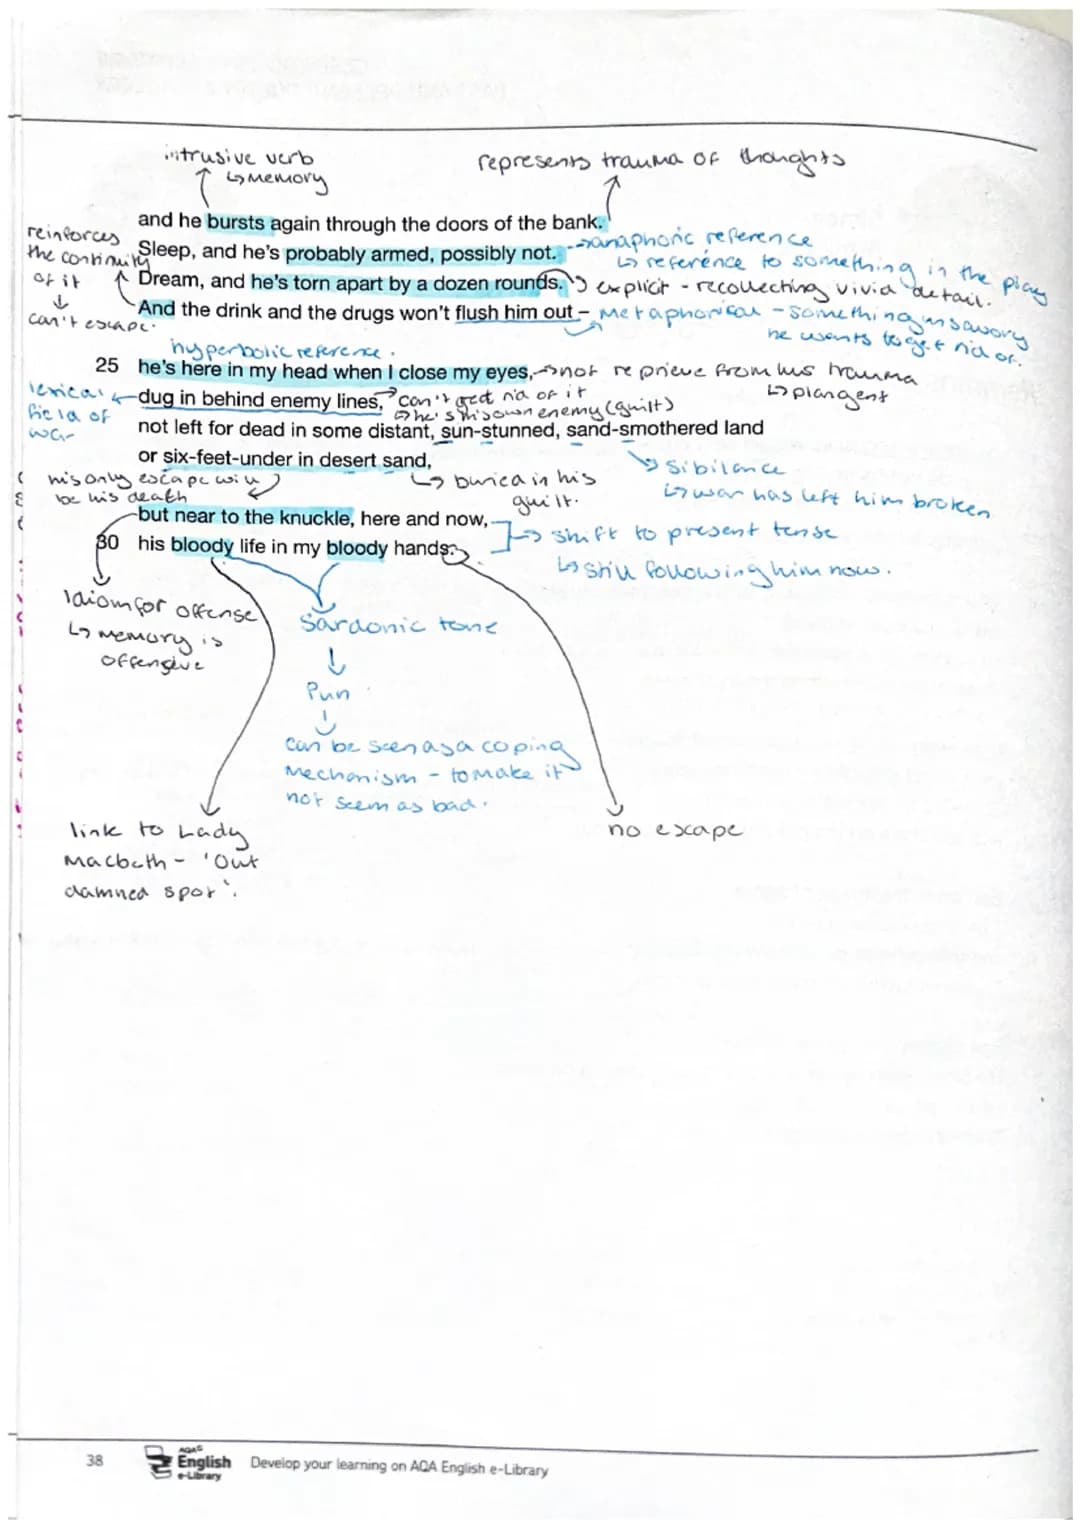 intrusive verb
↳ memory
represents trauma of thoughts
and he bursts again through the doors of the bank.
reinforces
the continuity
of it
↓
can't escape.
Sleep, and he's probably armed, possibly not.
→ anaphoric reference
↳ reference to something in the play
Dream, and he's torn apart by a dozen rounds.
explicit - recollecting vivid detail.
And the drink and the drugs won't flush him out –
Metaphorical - something unsavory
he wants to get rid of.
hyperbolic reference.
25 he's here in my head when I close my eyes,
→ not reprieve from his trauma
↳ plangent
lexical
field of
war
dug in behind enemy lines,
can't get rid of it
↳ he's his own enemy (guilt)
not left for dead in some distant, sun-stunned, sand-smothered land
or six-feet-under in desert sand,
↳ sibilance
↳ war has left him broken
his only escape will
be his death
↳ buried in his
guilt.
but near to the knuckle, here and now,
30 his bloody life in my bloody hands.
→ shift to present tense
↳ still following him now.
Idiom for offense
↳ memory is
offensive
Sardonic tone
↓
Pun
↓
can be seen as a coping
Mechanism - to make it
not seem as bad.
link to Lady
Macbeth - 'Out
damned spot'.
no escape
38
AQA
English
e-Library
Develop your learning on AQA English e-Library